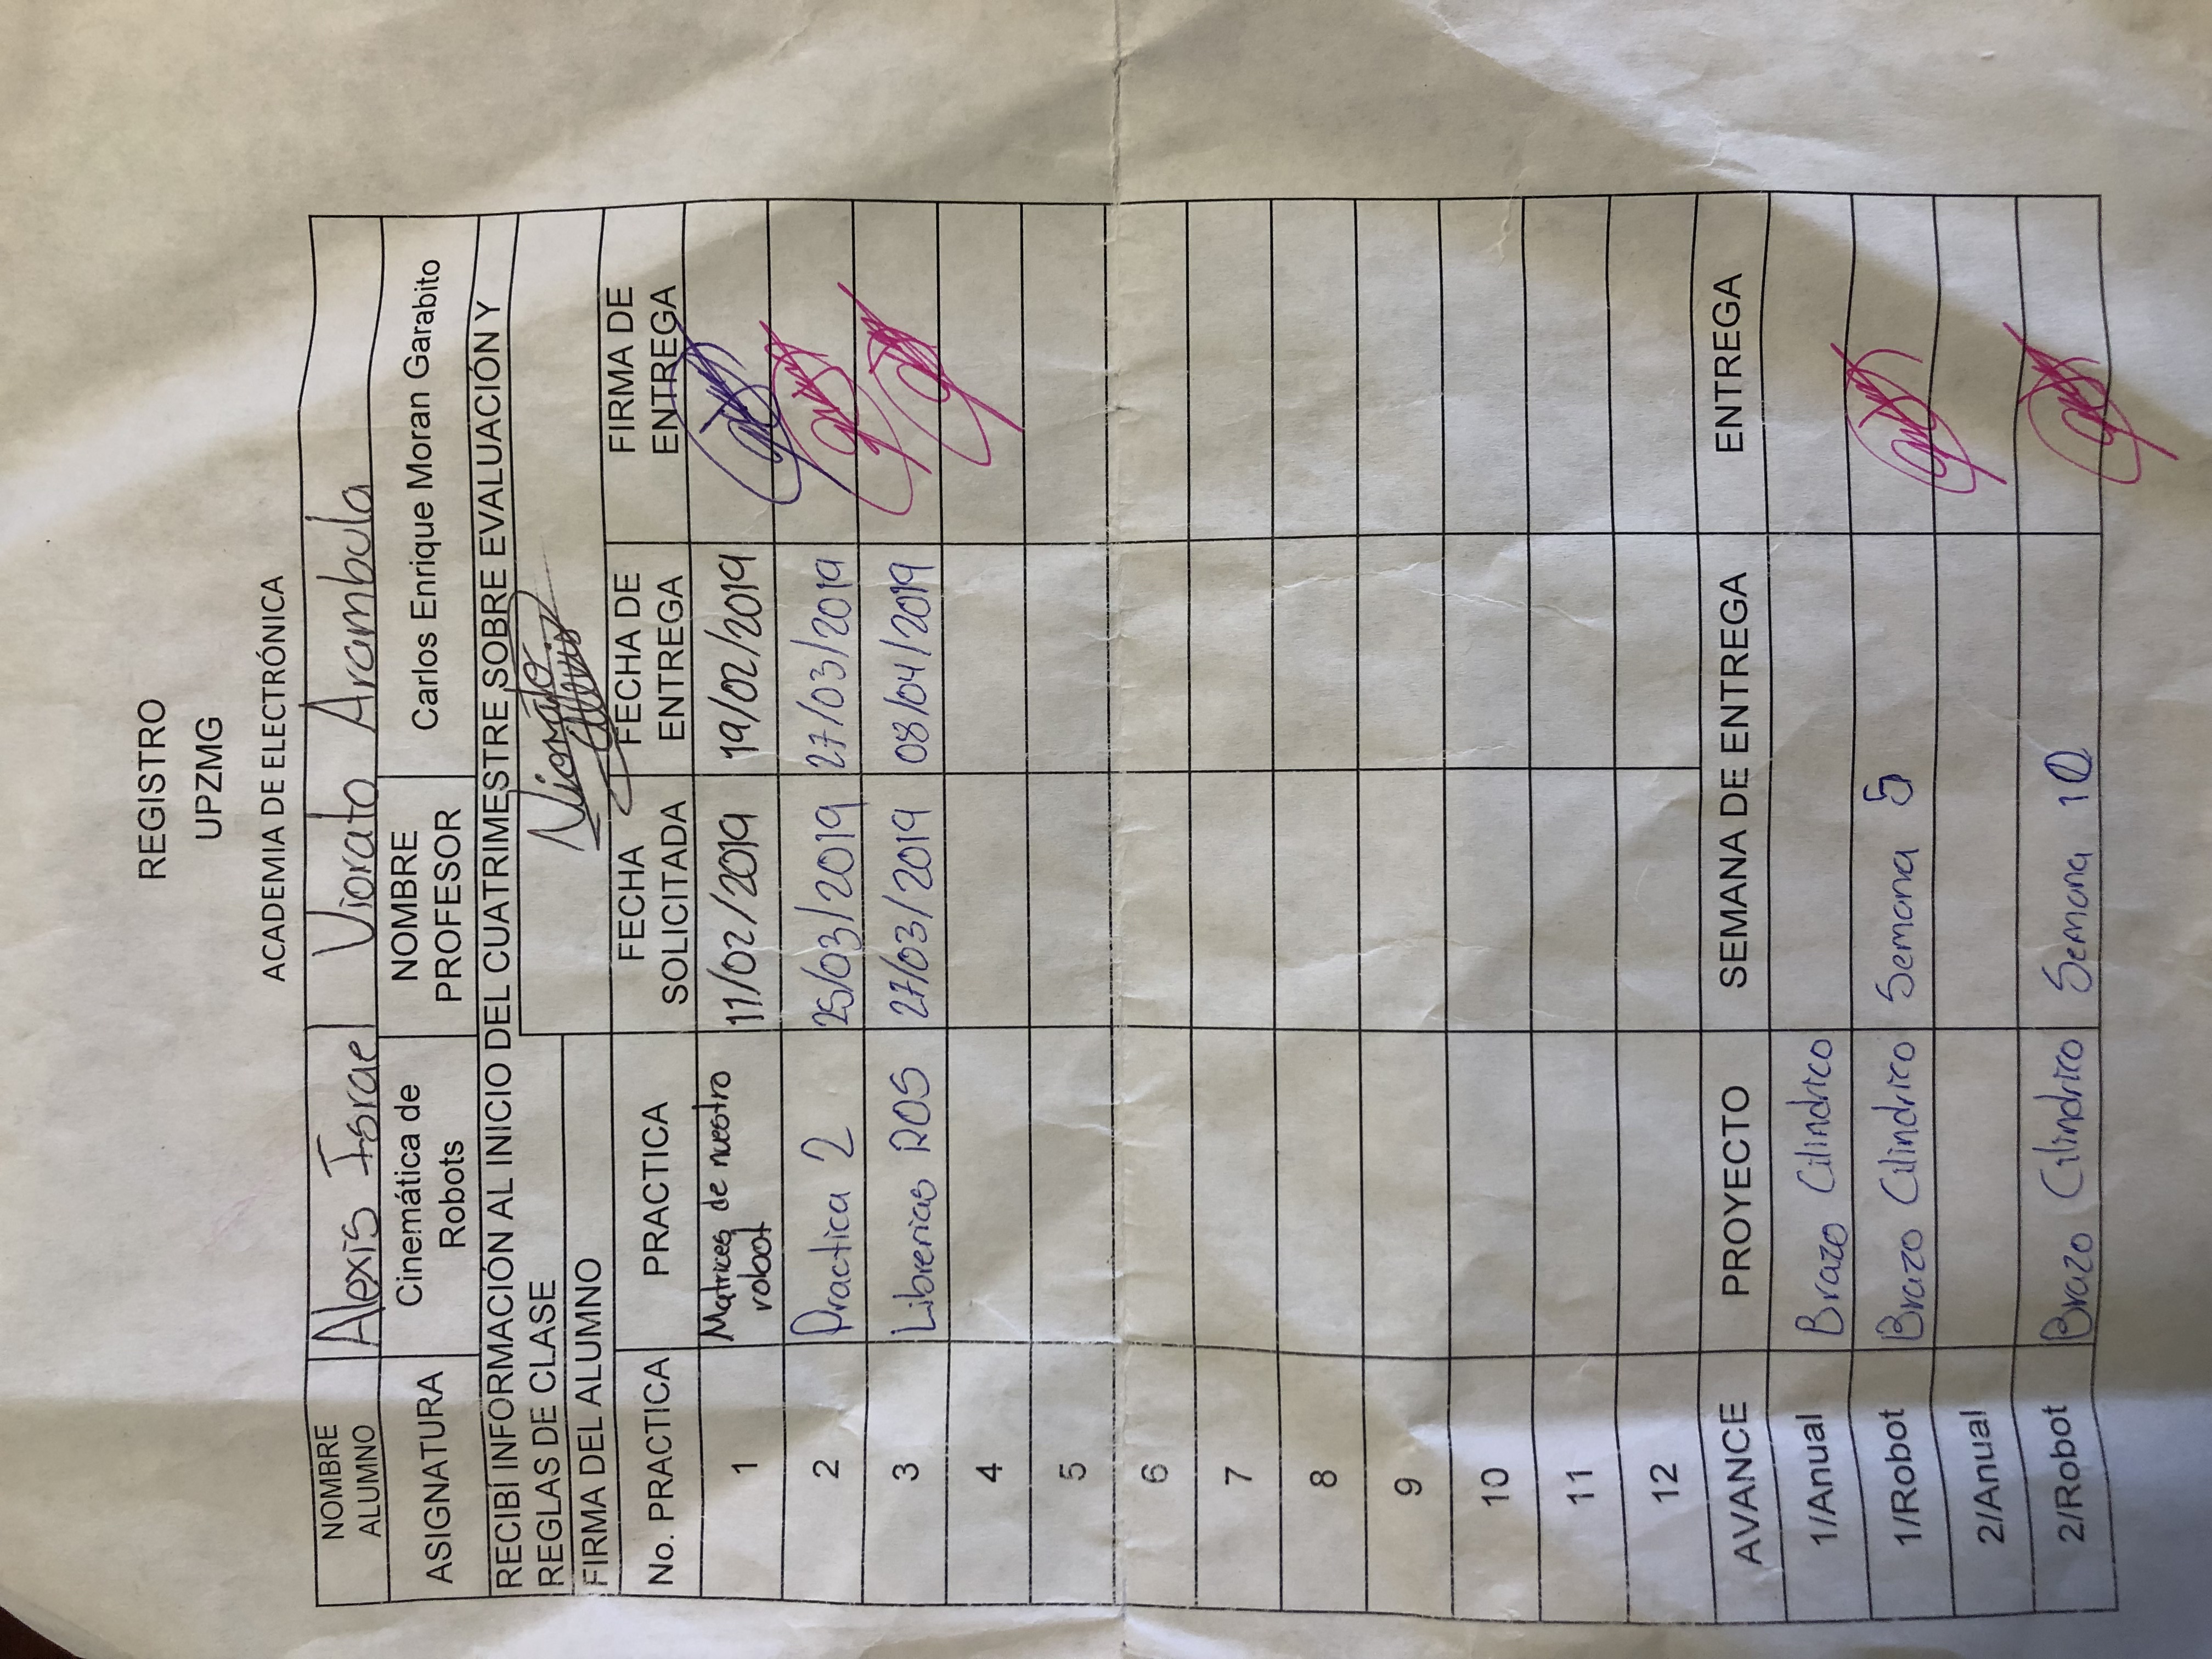 REGISTRO
UPZMG
ACADEMIA DE ELECTRÓNICA
NOMBRE ALUMNO Alexis Israel Viorato Arambula
ASIGNATURA Cinemática de Robots NOMBRE PROFESOR Carlos Enrique Moran Garabito
RECIBÍ INFORMACIÓN AL INICIO DEL CUATRIMESTRE SOBRE EVALUACIÓN Y
REGLAS DE CLASE
Viorato
Alexis
FIRMA DEL ALUMNO
No. PRACTICA PRACTICA FECHA SOLICITADA FECHA DE ENTREGA FIRMA DE ENTREGA
1 Matrices de nuestro robot 11/02/2019 19/02/2019
2 Practica 2 25/03/2019 27/03/2019
3 Librerias ROS 27/03/2019 08/04/2019
4
5
6
7
8
9
10
11
12
AVANCE PROYECTO SEMANA DE ENTREGA ENTREGA
1/Anual Brazo Cilindrico
1/Robot Brazo Cilindrico Semana 5
2/Anual
2/Robot Brazo Cilindrico Semana 10